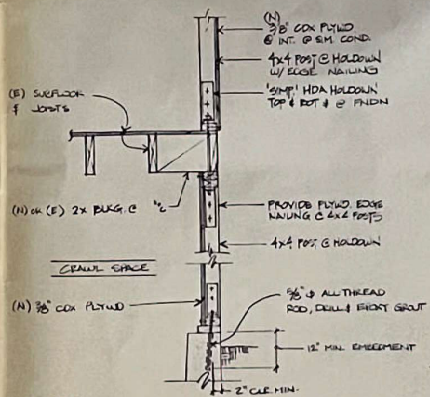 (N)
3/8" CDX PLYWD
@ INT. @ SIM. COND.
4x4 POST @ HOLDOWN
W/ EDGE NAILING
'SIMP.' HDA HOLDOWN
TOP & BOT & @ FNDN
(E) SUBFLOOR
& JOISTS
(N) OR (E) 2x BLKG. @
PROVIDE PLYWD. EDGE
NAILING @ 4x4 POSTS
4x4 POST @ HOLDOWN
CRAWL SPACE
(N) 3/8" CDX PLYWD
5/8" ϕ ALL THREAD
ROD, DRILL & EPOXY GROUT
12" MIN. EMBEDMENT
2" CLR. MIN.